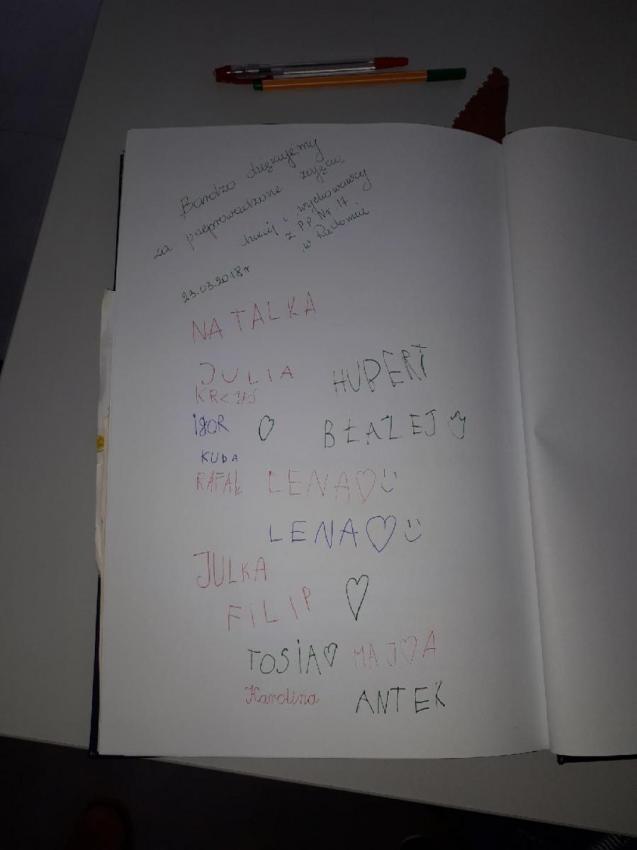 Bardzo dziękujemy
za przeprowadzone zajęcia
dzieci i wychowawcy
z P.P. Nr 17
w Radomiu
23.03.2018r
NATALKA
JULIA
HUBERT
KRZYŚ
IGOR
BŁAZEJ
KUBA
RAFAŁ LENA
LENA
JULKA
FILIP
TOSIA MAJA
Karolina ANTEK